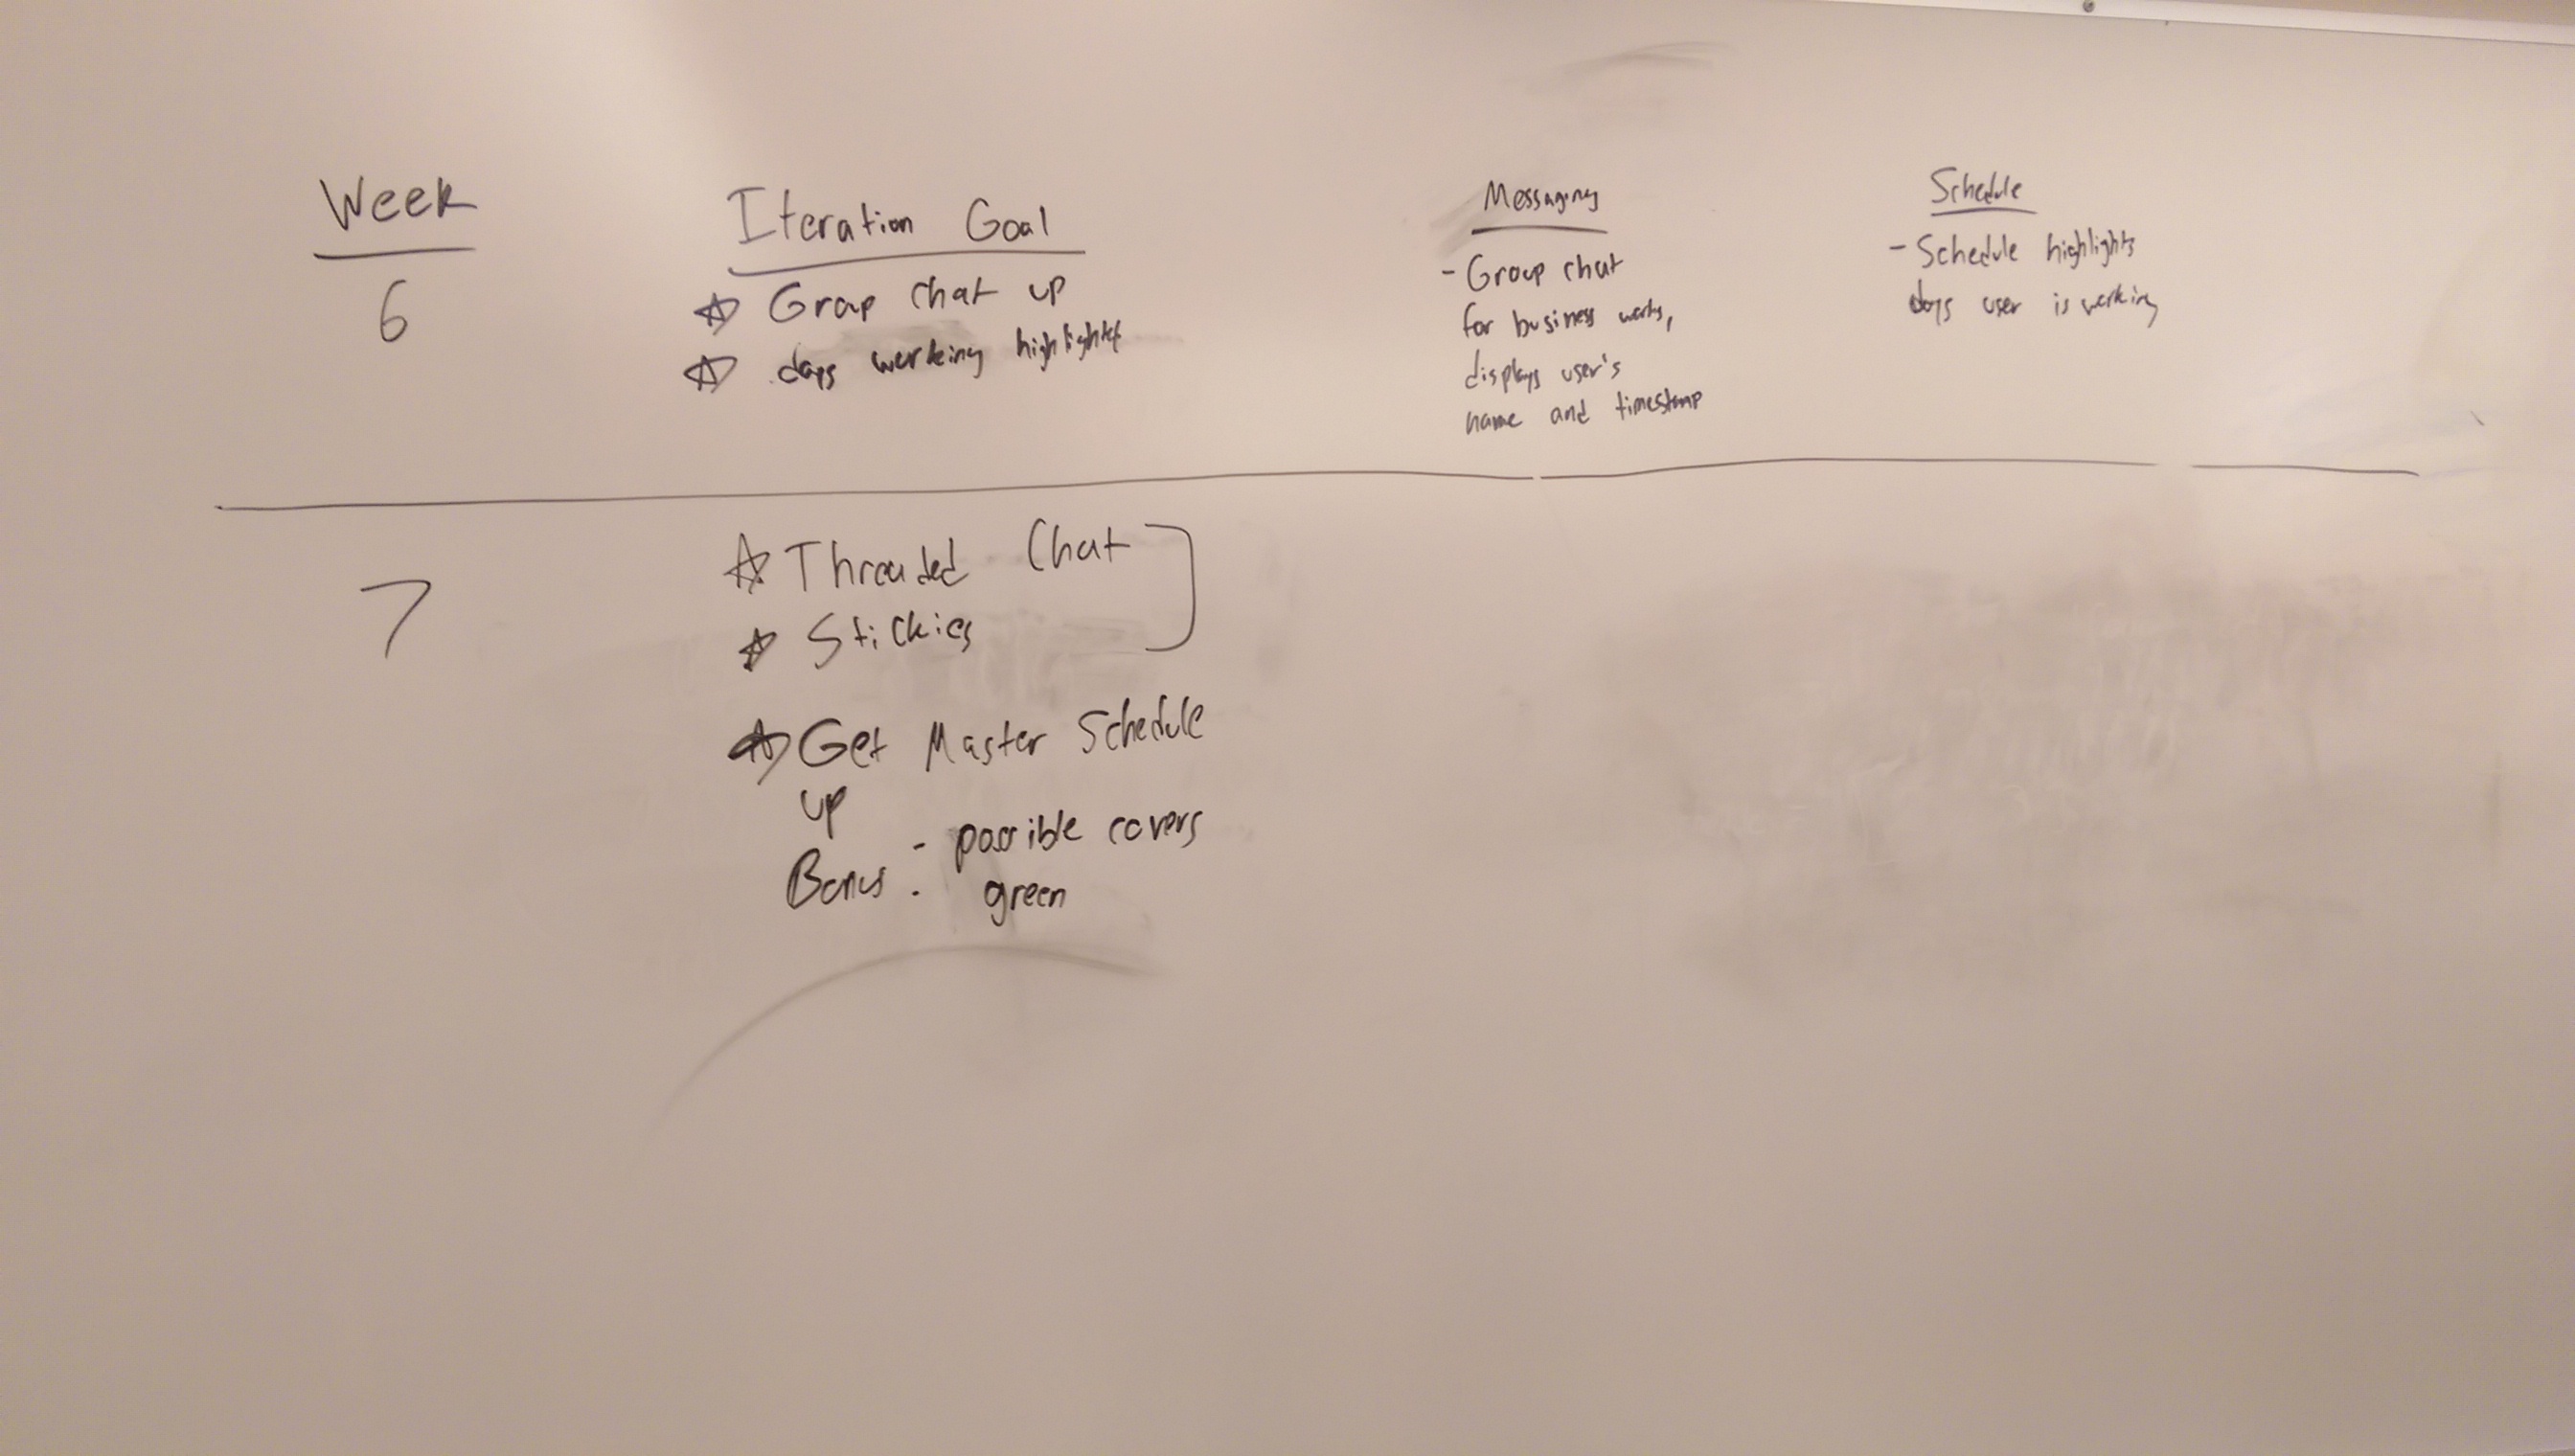 Week
6
Iteration Goal
☆ Group Chat up
☆ days working highlighted
Messaging
- Group chat
for business works,
displays user's
name and timestamp
Schedule
- Schedule highlights
days user is working
7
☆ Threaded Chat
☆ Stickies
☆ Get Master Schedule
up
Bonus : - possible covers
green